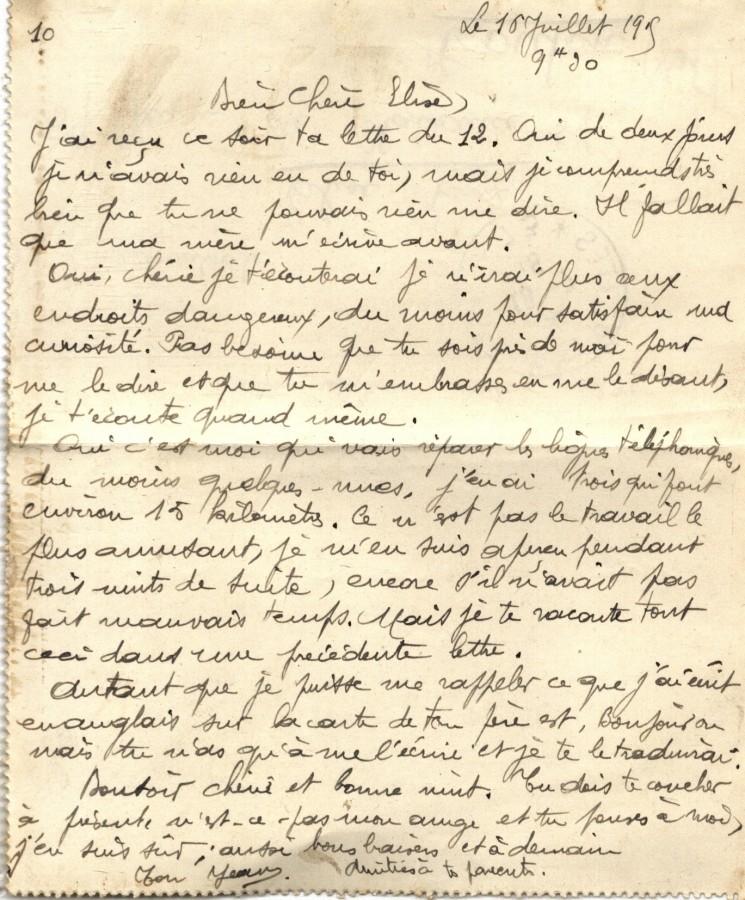 10
Le 16 Juillet 195
9H 30
Bien Chère Elise,
J'ai reçu ce soir ta lettre du 12. Oui de deux jours
je n'avais rien eu de toi, mais je comprends très
bien que tu ne pouvais rien me dire. Il fallait
que ma mère m'écrive avant.
Oui, chérie je t'écouterai je n'irai plus aux
endroits dangereux, du moins pour satisfaire ma
curiosité. Pas besoin que tu sois près de moi pour
me le dire et que tu m'embrasses en me le disant,
je t'écoute quand même.
Oui c'est moi qui vais réparer les lignes téléphoniques,
du moins quelques-unes, j'en ai trois qui font
environ 15 kilomètres. Ce n'est pas le travail le
plus amusant, je m'en suis aperçu pendant
trois nuits de suite, encore s'il n'avait pas
fait mauvais temps. Mais je te raconte tout
ceci dans une précédente lettre.
Autant que je puisse me rappeler ce que j'ai écrit
en anglais sur la carte de ton père est, bonjour ou
mais tu n'as qu'à me l'écrire et je te le traduirai.
Bonsoir chérie et bonne nuit. Tu dois te coucher
à présent, n'est-ce-pas mon ange et tu penses à moi,
j'en suis sûr, aussi bons baisers et à demain
Ton Jean. Amitiés à tes parents.